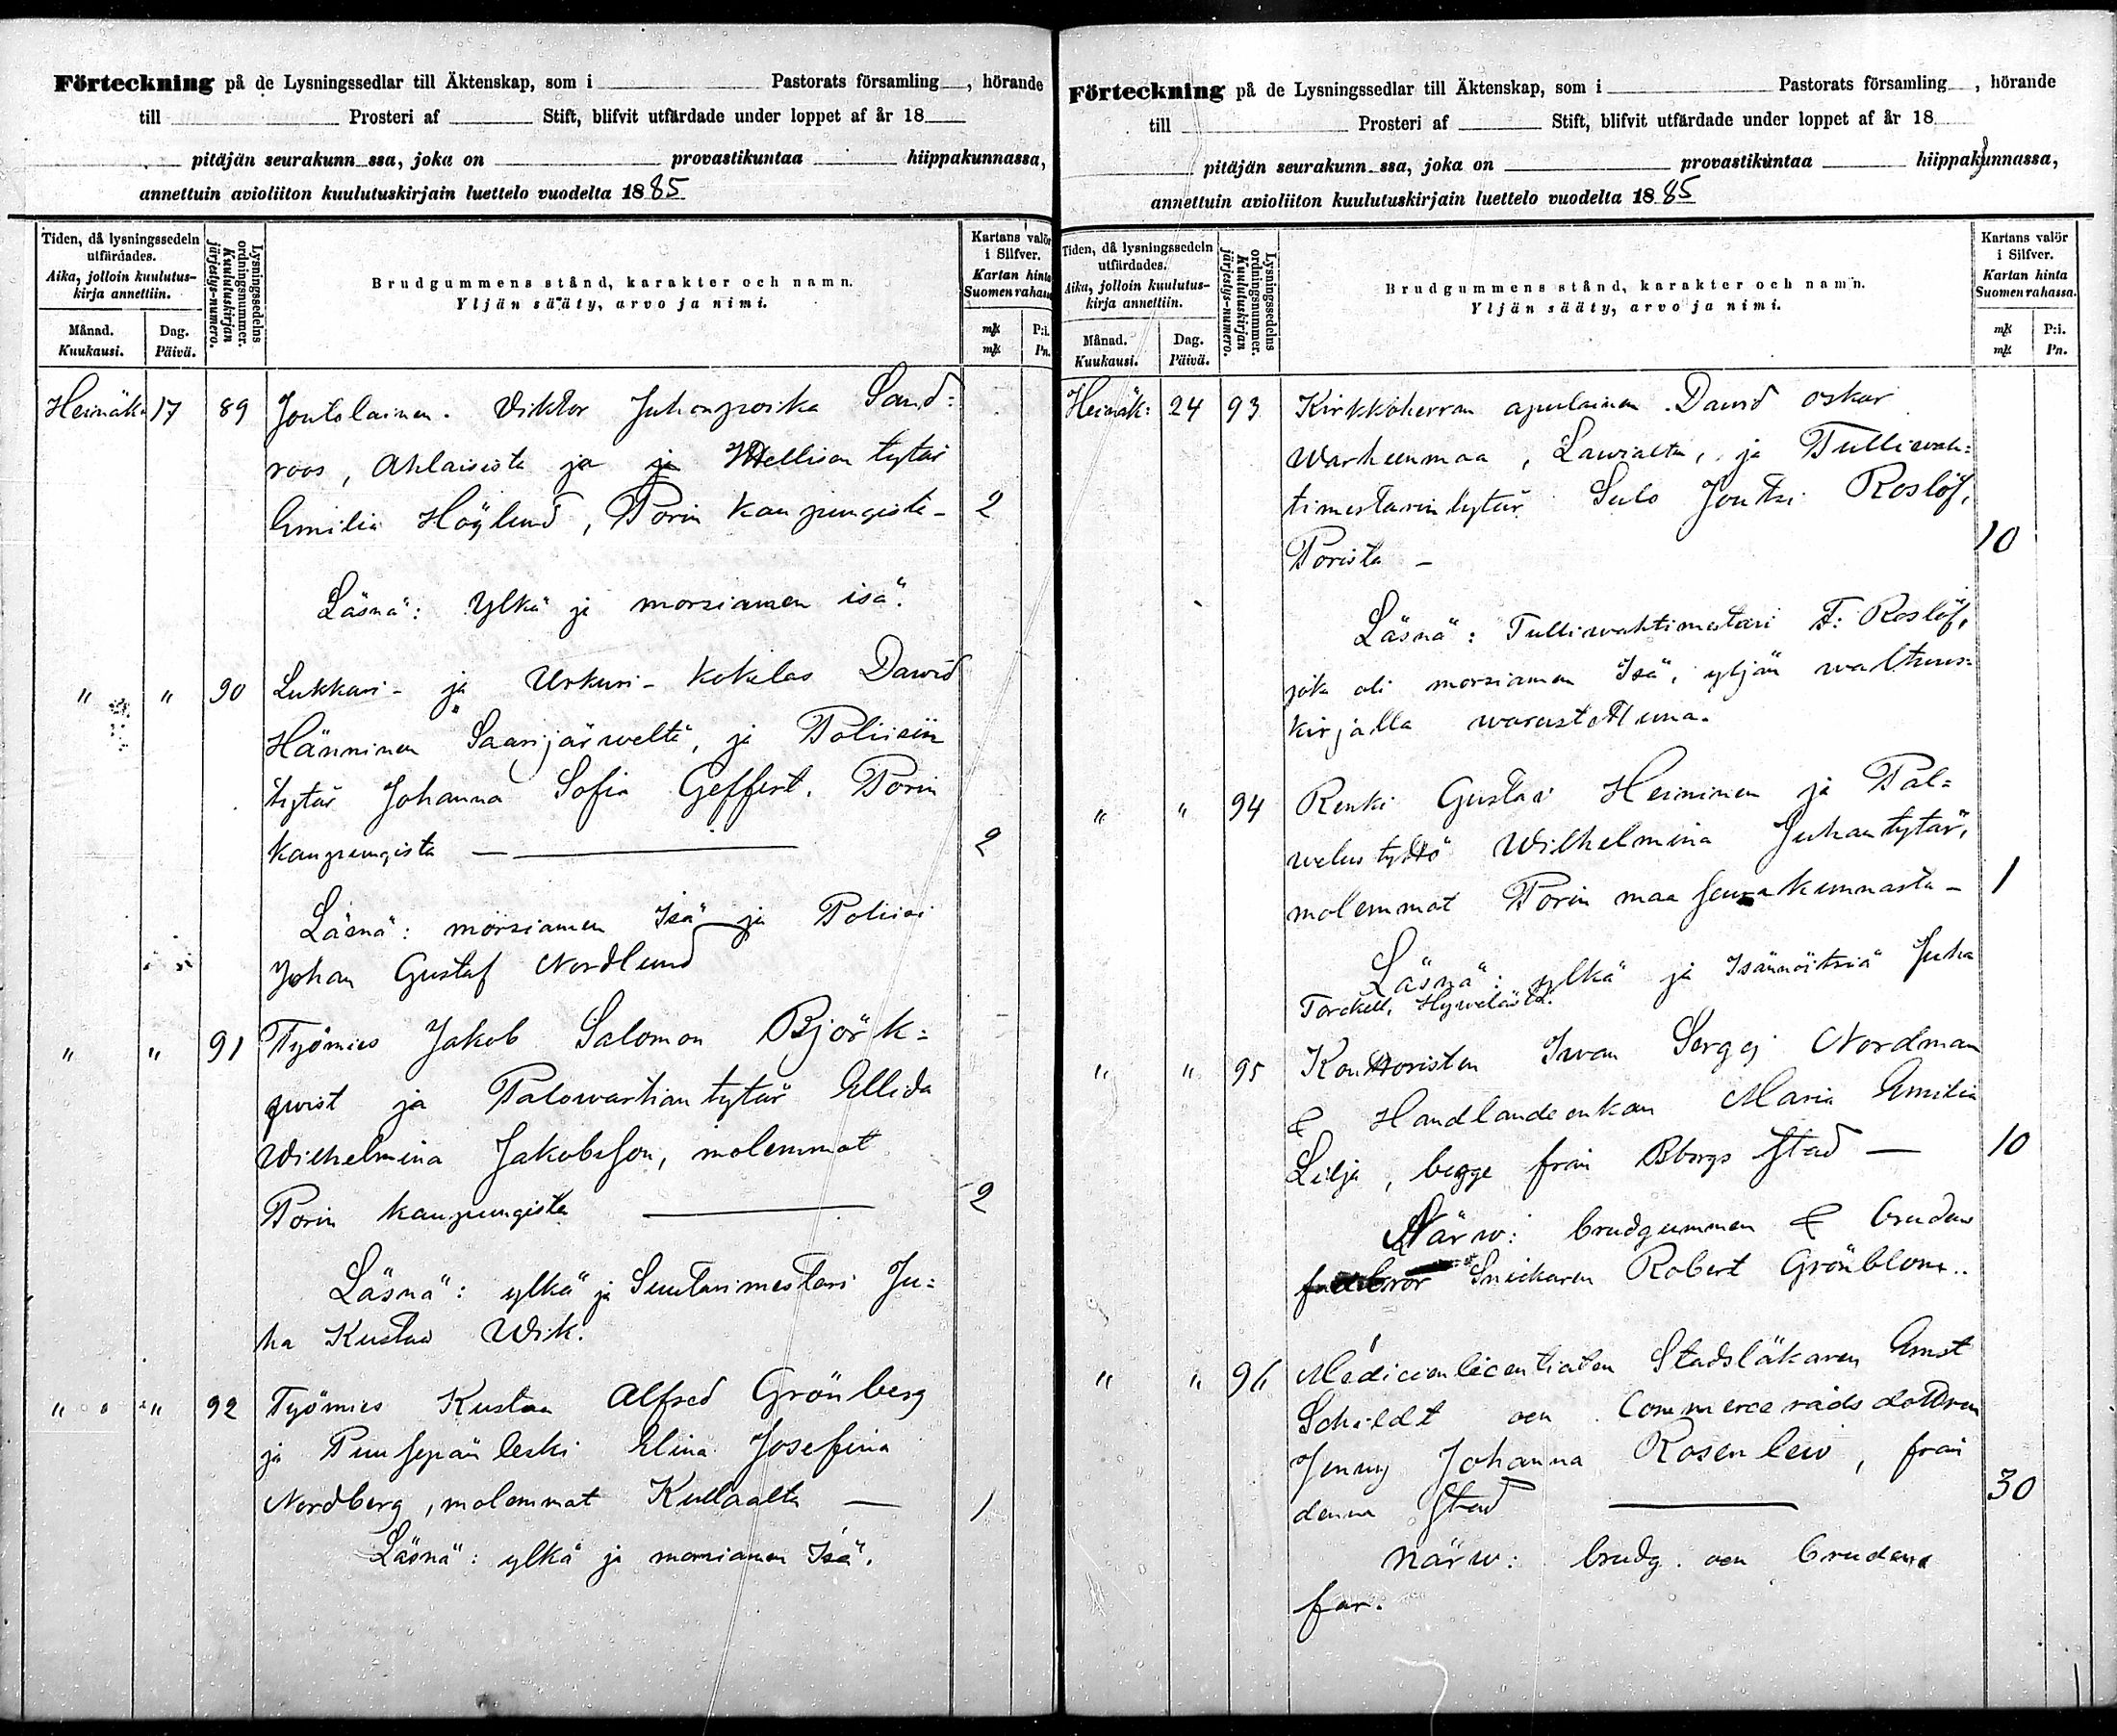 Förteckning på de Lysningssedlar till Äktenskap, som i Pastorats församling, hörande
till Prosteri af Stift, blifvit utfärdade under loppet af år 18
pitäjän seurakunn ssa, joka on provastikuntaa hiippakunnassa,
annettuin avioliiton kuulutuskirjain luettelo vuodelta 1885
Tiden, då lysningssedeln
utfärdades.
Aika, jolloin kuulutus-
kirja annettiin.
Månad.
Kuukausi.
Dag.
Päivä.
Lysningssedelns
ordningsnummer.
Kuulutuskirjan
järjestys-numero.
Brudgummens stånd, karakter och namn.
Yljän sääty, arvo ja nimi.
Kartans valör
i Silfver.
Kartan hinta
Suomen rahassa
mk P:i.
mk Pn.
Heinäk: 17 89 Joutolainen. Viktor Juhonpoika Sand=
roos, Ahlaisista ja Wellison tytär
Emilia Höglund, Porin kaupungista - 2
Läsnä: Ylkä ja morsiamen isä.
" " 90 Lukkari- ja Urkuri- kokelas Dawid
Hänninen Saarijärweltä, ja Poliisin
tytär Johanna Sofia Geffert. Porin
kaupungista — 2
Läsnä: morsiamen Isä ja Poliisi
Johan Gustaf Nordlund
" " 91 Työmies Jakob Salomon Björk=
qwist ja Palowartian tytär Ellida
Wilhelmina Jakobsson, molemmat
Porin kaupungista — 2
Läsnä: ylkä ja Suutarimestari Ju=
ha Kustaa Wik.
" " 92 Työmies Kustaa Alfred Grönberg
ja Puusepän leski Elina Josefina
Nordberg, molemmat Kullaalta — 1
Läsnä: ylkä ja morsiamen Isä.
Förteckning på de Lysningssedlar till Äktenskap, som i Pastorats församling, hörande
till Prosteri af Stift, blifvit utfärdade under loppet af år 18
pitäjän seurakunn ssa, joka on provastikuntaa hiippakunnassa,
annettuin avioliiton kuulutuskirjain luettelo vuodelta 1885
Tiden, då lysningssedeln
utfärdades.
Aika, jolloin kuulutus-
kirja annettiin.
Månad.
Kuukausi.
Dag.
Päivä.
Lysningssedelns
ordningsnummer.
Kuulutuskirjan
järjestys-numero.
Brudgummens stånd, karakter och namn.
Yljän sääty, arvo ja nimi.
Kartans valör
i Silfver.
Kartan hinta
Suomen rahassa.
mk P:i.
mk Pn.
Heinäk: 24 93 Kirkkoherran apulainen Dawid oskar
Warheenmaa, Lawialta, ja Tulliwah=
timestarin tytär Sulo Jontzi Roslöf,
Porista - 10
Läsnä: Tulliwahtimestari F: Roslöf,
joka oli morsiamen Isä, yljän waltuus=
kirjalla warustettuna.
" " 94 Renki Gustaf Heininen ja Pal=
welus tyttö Wilhelmina Juhantytär,
molemmat Porin maa seurakunnasta - 1
Läsnä: ylkä ja Isännöitsiä Juha
Torckell, Hyweläst.
" " 95 Kontoristen Iwan Sergej Nordman
& Handlandeenkan Maria Emilia
Lilja, begge från Bborgs stad — 10
Närw: brudgummen & brudens
bror Snickaren Robert Grönblom..
" " 96 Medicienlicentiaten Stadsläkaren Ernst
Schildt och Commerceråds dottren
Jenny Johanna Rosenlew, från
denna stad — 30
närw: brudg. och brudens
far.